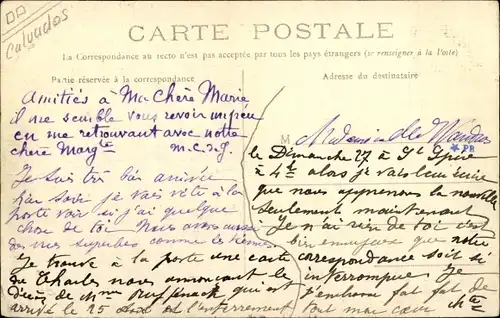 Calvados
CARTE POSTALE
La Correspondance au recto n'est pas acceptée par tous les pays étrangers (se renseigner à la Poste)
Partie réservée à la correspondance
Adresse du destinataire
Amitiés à Ma Chère Marie
il me semble vous revoir un peu
en me retrouvant avec notre
chère Margte
M
Mademoiselle
PR
Je suis très bien arrivée
hier soir je vais vite à la
porte voir si j'ai quelque
chose de toi Nous avons aussi
des mers superbes comme
Je trouve à la porte une carte
de Charles nous annonçant le
décès de Mme qui est
arrivé le 25 l'enterrement
le Dimanche 27 à St
à 4h alors je vais leur écrire
que nous apprenons la nouvelle
seulement maintenant
Je n'ai rien de toi c'est
bien ennuyeux que notre
correspondance soit si
interrompue Je
t'embrasse
tout mon cœur